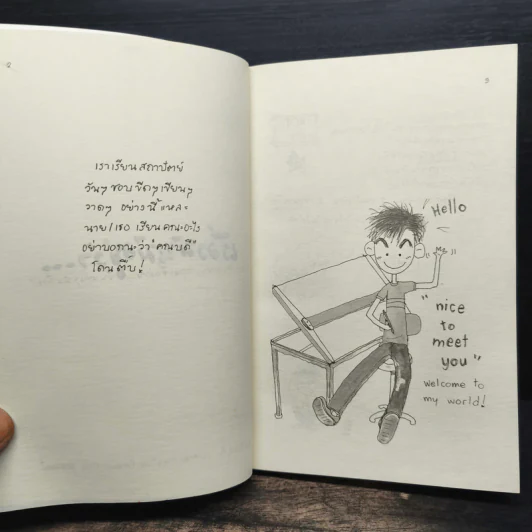 ๘
เราเรียนสถาปัตย์
วันๆ ชอบขีดๆ เขียนๆ
วาดๆ อย่างนี้แหละ
นาย/เธอ เรียนคณะอะไร
อย่าบอกนะว่า "คณบดี"
โดนตึ๊บ!
๖
Hello
"nice
to
meet
you"
welcome to
my world!